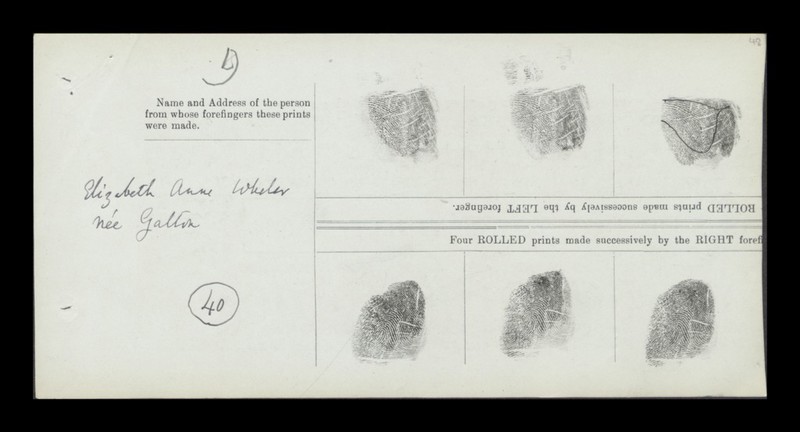 D
42
Name and Address of the person
from whose forefingers these prints
were made.
Elizabeth Anne Wheler
née Galton
40
ROLLED prints made successively by the LEFT forefinger.
Four ROLLED prints made successively by the RIGHT foref